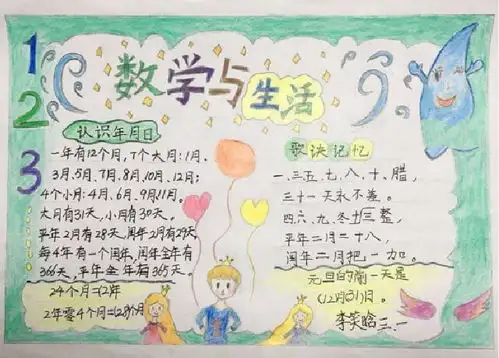 数学与生活
1
2
3
认识年月日
一年有12个月,7个大月:1月、
3月、5月、7月、8月、10月、12月;
4个小月:4月、6月、9月、11月。
大月有31天,小月有30天。
平年2月有28天,闰年2月有29天
每4年有一个闰年,闰年全年有
366天,平年全年有365天。
24个月=(2)年
2年零4个月=(28)个月
歌诀记忆
一、三、五、七、八、十、腊,
三十一天永不差。
四、六、九、冬三十整,
平年二月二十八,
闰年二月把一加。
元旦的前一天是
(12月31)日。
李笑晗 三、一